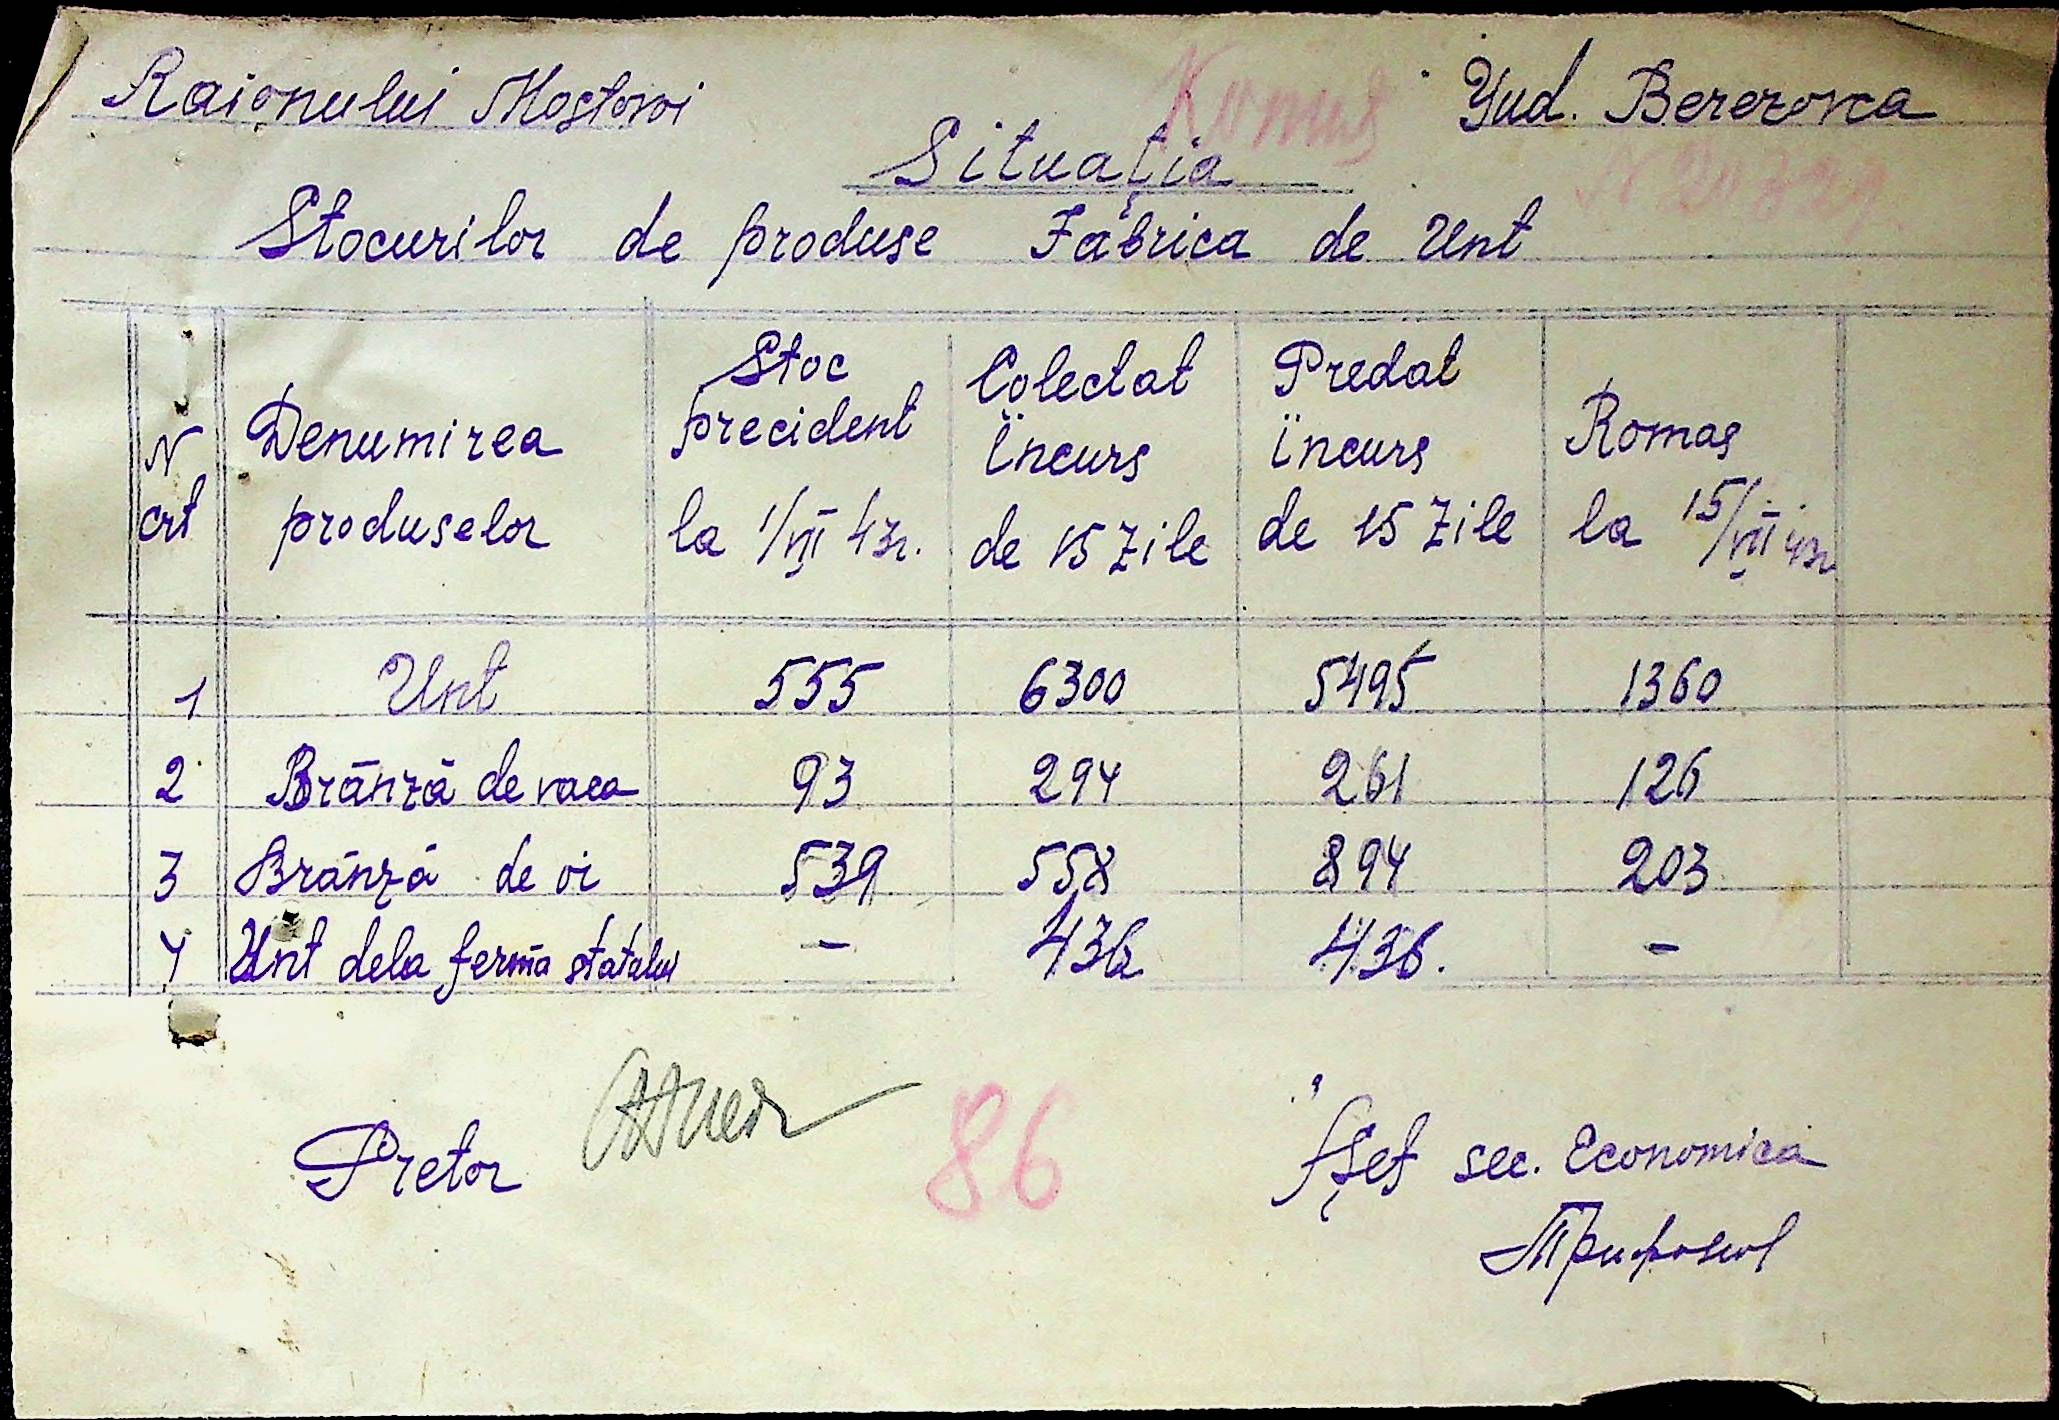 Raionului Mostovoi Yud. Berezovca
Situaţia
Stocurilor de produse Fabrica de Unt
N crt Denumirea produselor Stoc precident la 1/VII 43 г. Colectat încurs de 15 zile Predat încurs de 15 zile Romaş la 15/VII 43 г.
1 Unt 555 6300 5495 1360
2 Brānză de vaca 93 294 261 126
3 Brānză de oi 539 558 894 203
4 Unt dela ferma statului – 436 436. –
Pretor 86 Şef sec. Economica